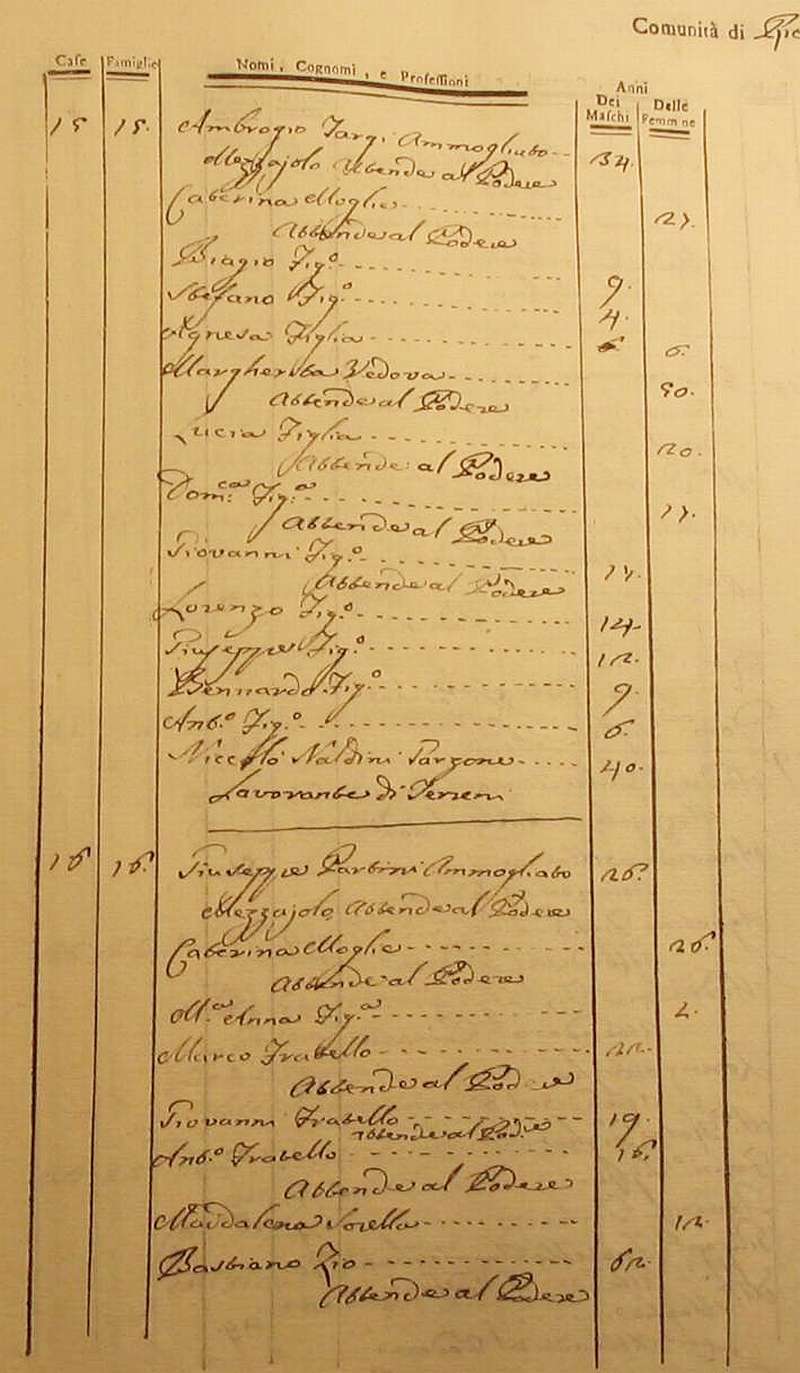 Comunità di
Case Famiglie Nomi, Cognomi, e Professioni Anni
Dei Maschi Delle Femmine
15 15. Ambrogio Ammogliato 34.
Mezzajolo Attende al Podere
Caterina Moglie 27.
Attende al Podere
Biagio Fig.º 9
Stefano Fig.º 4.
Agnesa Figlia 6.
Margherita Vedova 50.
Attende al Podere
Lucia Figlia 20.
Attende al Podere
Dom.ca Fig.a 17.
Attende al Podere
Giovanni Fig.º 17.
Attende al Podere
Lorenzo Fig.º 14.
Giuseppe Fig.º 12.
Bernardo Fig.º 9
Ant.º Fig.º 6.
Niccolò Naldini Garzone 40.
Lavorante di Terreni
16 16. Giuseppe Ammogliato 26.
Mezzajolo Attende al Podere
Caterina Moglie 26.
Attende al Podere
M.a Anna Fig.a 2.
Marco Fratello 22.
Attende al Podere
Giovanni Fratello 19.
Attende al Podere
Ant.º Fratello 16.
Attende al Podere
Maddalena Sorella 12.
Bastiano Zio 62.
Attende al Podere